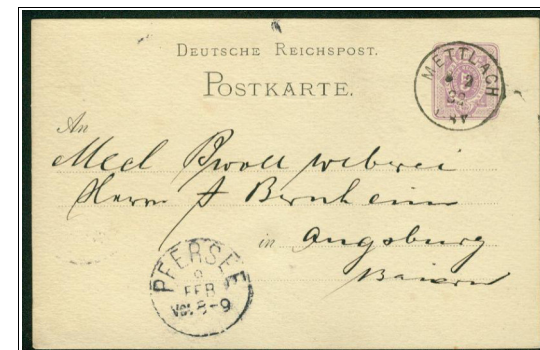 DEUTSCHE REICHSPOST.
POSTKARTE.
METTLACH
An
Mech Bwoll weberei
Herrn J Bernheim
in Augsburg
Baiern
PFERSEE
9
FEB
Vor. 8-9